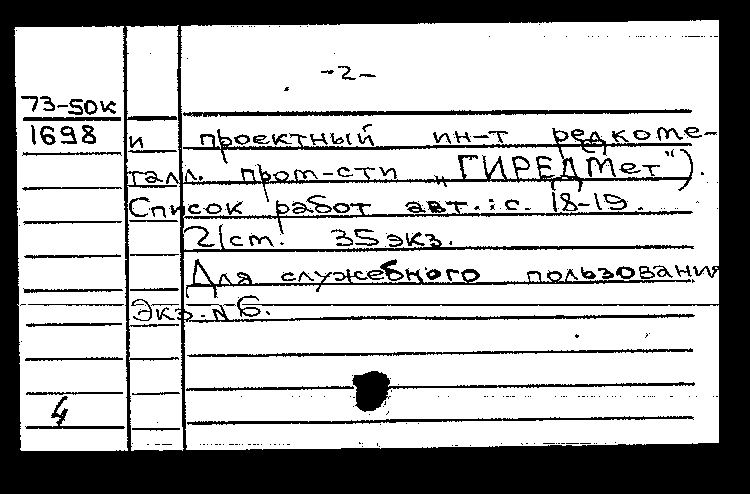 -2-
73-50к
1698 и проектный ин-т редкоме-
талл. пром-сти „ГИРЕДМет").
Список работ авт.: с. 18-19.
2/ст. 35 экз.
Для служебного пользования
Экз. № 6.
4